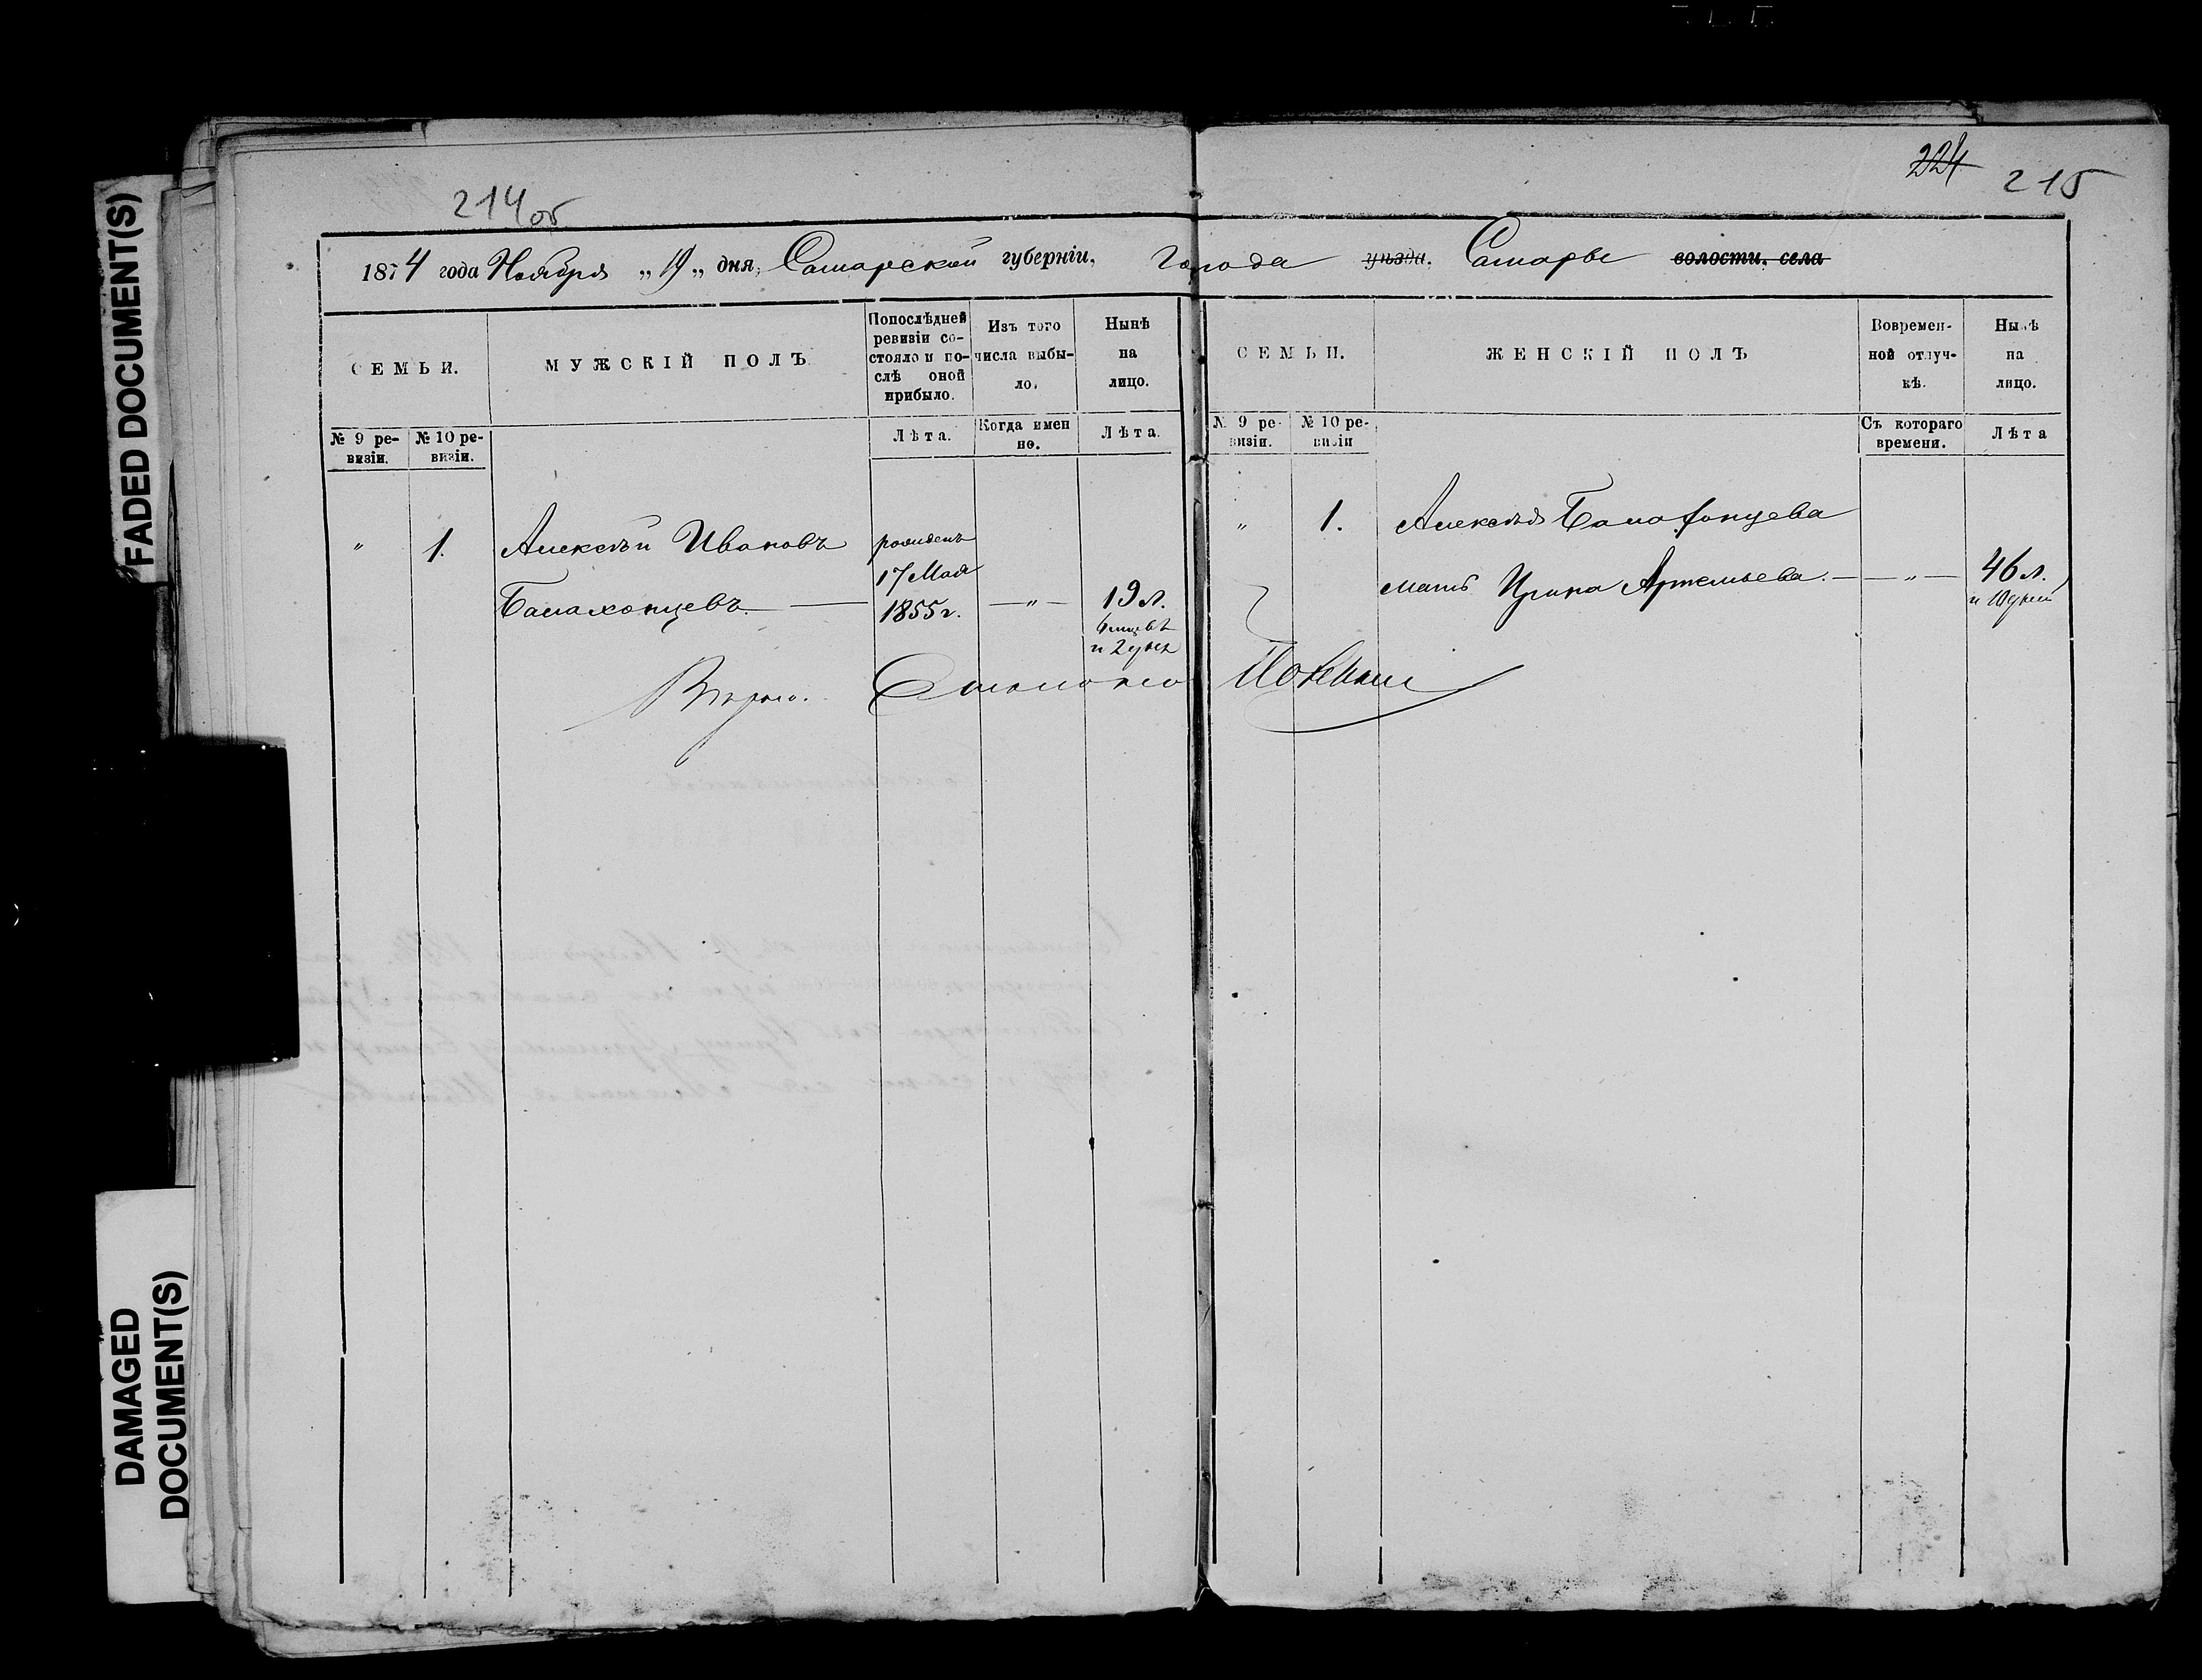 FADED DOCUMENT(S)
DAMAGED DOCUMENT(S)
214 об
224 215
1874 года Ноября „19„ дня, Самарской губерніи, Города уѣзда, Самары волости, села
СЕМЬИ.
МУЖСКІЙ ПОЛЪ
Попослѣдней ревизіи состояло и послѣ оной прибыло.
Изъ того числа выбыло.
Нынѣ на лицо.
СЕМЬИ.
ЖЕНСКІЙ ПОЛЪ
Вовременной отлучкѣ.
Нынѣ на лицо.
№ 9 ревизіи.
№ 10 ревизіи.
Лѣта.
Когда именно.
Лѣта.
№ 9 ревизіи.
№ 10 ревизіи
Съ котораго времени.
Лѣта
„ 1. Алексѣй Ивановъ рожденъ
17 Мая
Балахонцевъ. 1855 г. — „ — 19 л.
6 мцевъ
и 2 дня
„ 1. Алексѣя Балахонцева
мать Ирина Артемьева. — „ — 46 л.
и 10 дней
Вѣрно.